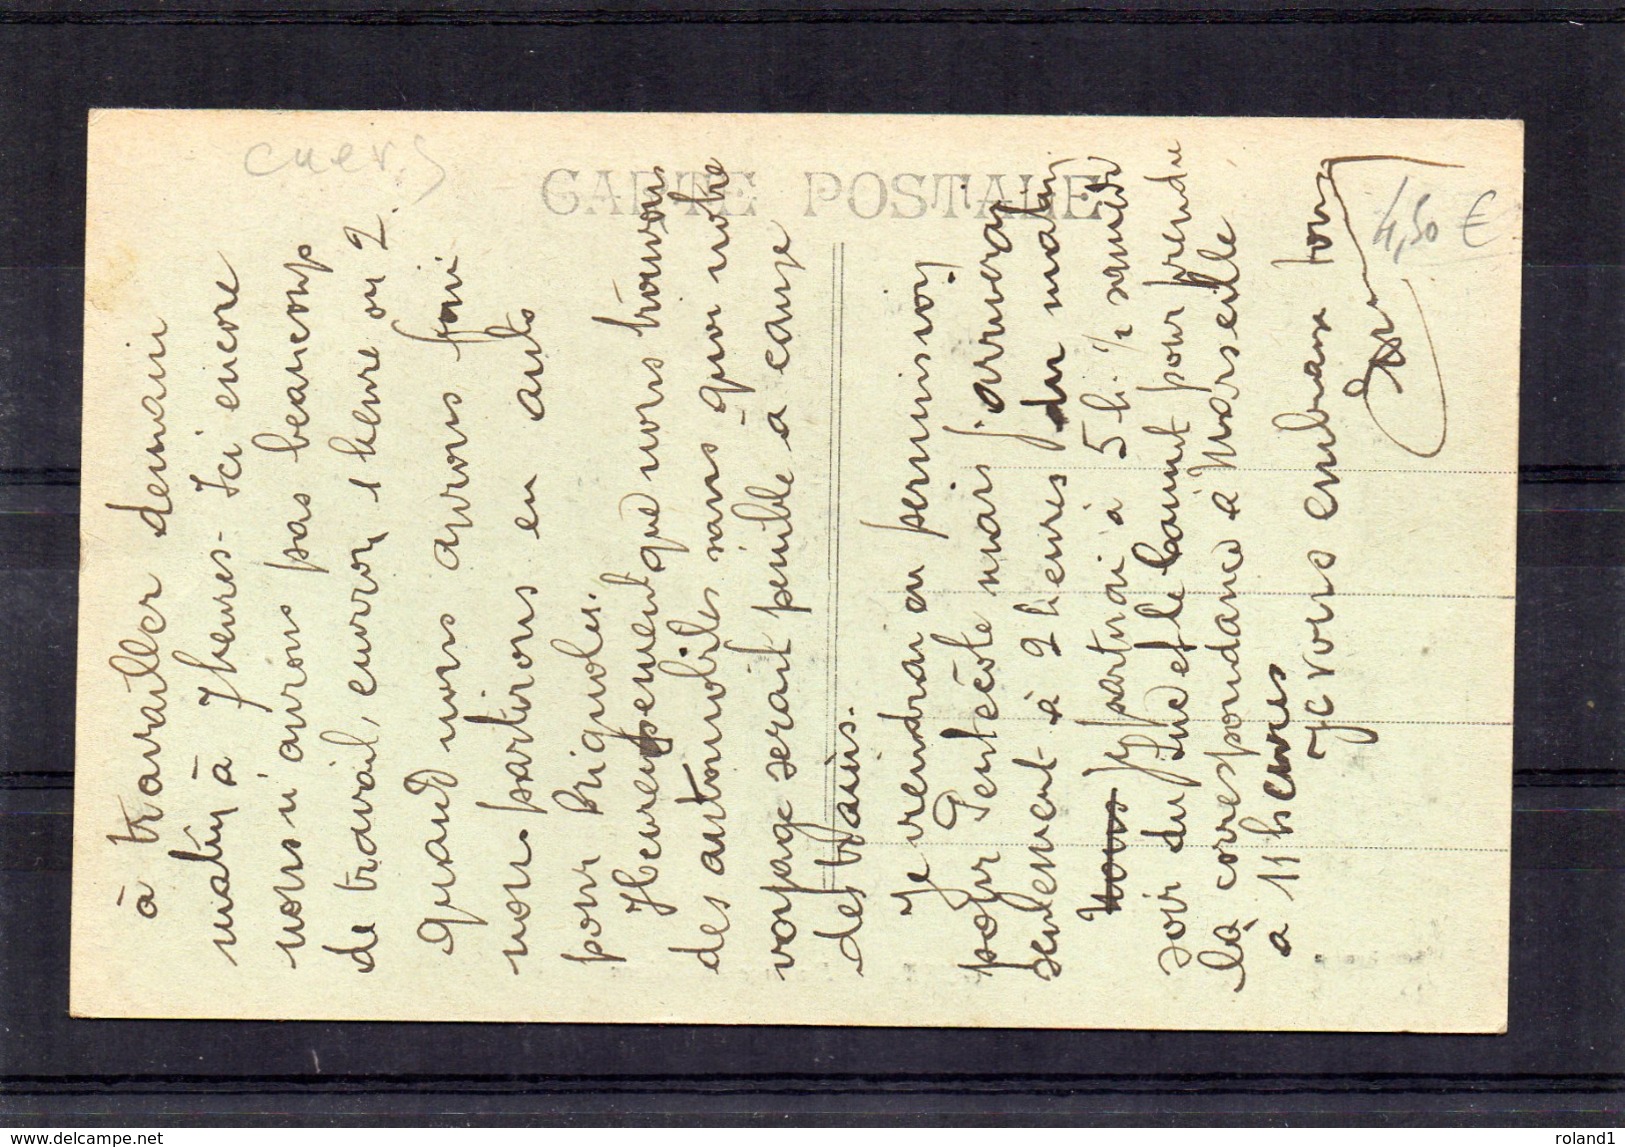 cuers
CARTE POSTALE
4,50 €
à travailler demain
matin à 7 heures. Ici encore
nous n'aurons pas beaucoup
de travail, environ 1 heure ou 2.
Quand nous aurons fini
nous partirons en auto
pour Brignoles.
Heureusement que nous trouvons
des automobiles sans quoi notre
voyage serait pénible à cause
des trains.
Je viendrai en permission
pour Pentecôte mais j'arriverai
seulement à 2 heures du matin
Nous Je partirai à 5 h. 1/2 samedi
soir du Luc et le Cannet pour prendre
la correspondance à Marseille
à 11 heures
Je vous embrasse tous
www.delcampe.net
roland1